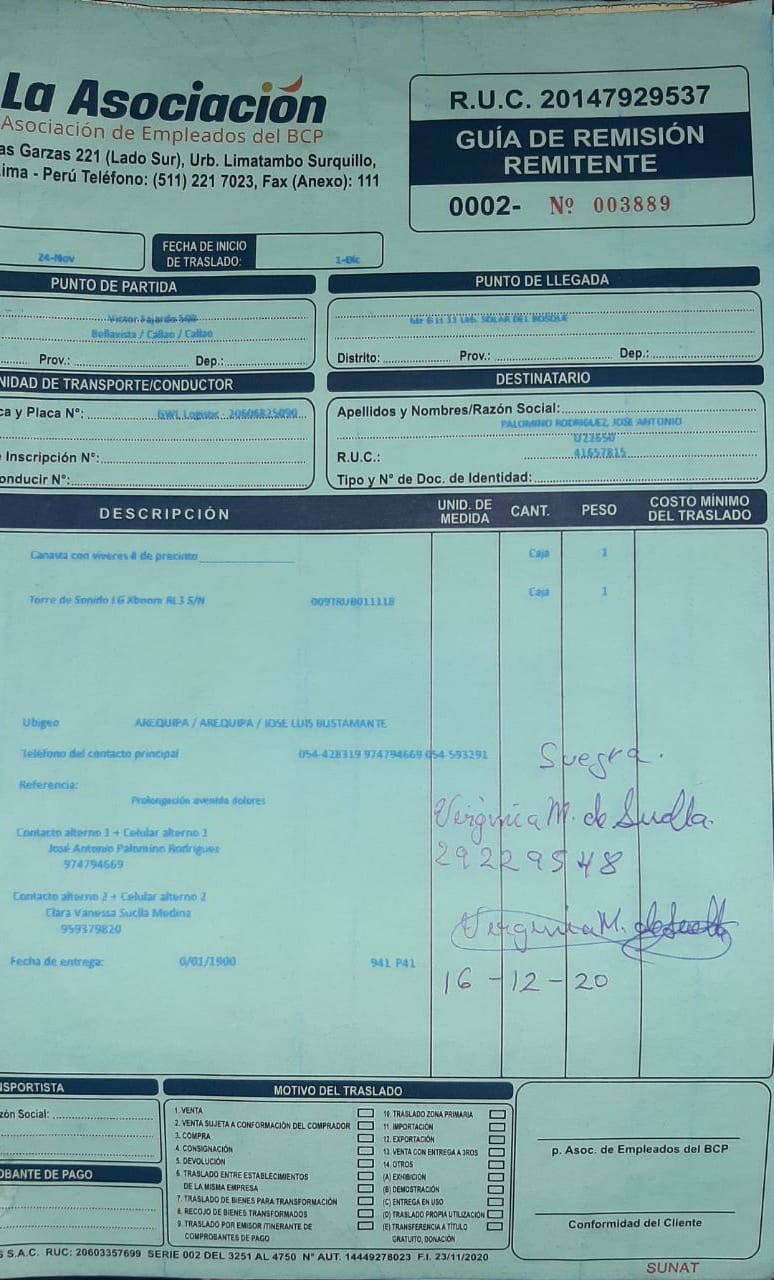 La Asociación
Asociación de Empleados del BCP
as Garzas 221 (Lado Sur), Urb. Limatambo Surquillo,
ima - Perú Teléfono: (511) 221 7023, Fax (Anexo): 111
R.U.C. 20147929537
GUÍA DE REMISIÓN
REMITENTE
0002- Nº 003889
24-Nov
FECHA DE INICIO
DE TRASLADO: 1-Dic
PUNTO DE PARTIDA
Victor Fajardo 500
Bellavista / Callao / Callao
Prov.: Dep.:
PUNTO DE LLEGADA
Urb. SOLAR DEL BOSQUE
Distrito: Prov.: Dep.:
NIDAD DE TRANSPORTE/CONDUCTOR
ca y Placa Nº: GWL Logistic 20606825090
Inscripción Nº:
onducir Nº:
DESTINATARIO
Apellidos y Nombres/Razón Social:
PALOMINO RODRIGUEZ, JOSE ANTONIO
U22650
R.U.C.: 41657815
Tipo y Nº de Doc. de Identidad:
DESCRIPCIÓN UNID. DE MEDIDA CANT. PESO COSTO MÍNIMO DEL TRASLADO
Canasta con viveres # de precinto Caja 1
Torre de Sonido LG Xboom RL3 S/N 009TRUB011118 Caja 1
Ubigeo AREQUIPA / AREQUIPA / JOSE LUIS BUSTAMANTE
Teléfono del contacto principal 054-428319 974794669 054-593291
Referencia:
Prolongación avenida dolores
Contacto alterno 1 + Celular alterno 1
José Antonio Palomino Rodriguez
974794669
Contacto alterno 2 + Celular alterno 2
Clara Vanessa Suclla Medina
959379820
Fecha de entrega: 0/01/1900 941 P41
Suegra.
Virginia M. de Suclla.
29229548
Virginia M. de Suclla
16-12-20
NSPORTISTA
zón Social:
OBANTE DE PAGO
MOTIVO DEL TRASLADO
1. VENTA
2. VENTA SUJETA A CONFORMACIÓN DEL COMPRADOR
3. COMPRA
4. CONSIGNACIÓN
5. DEVOLUCIÓN
6. TRASLADO ENTRE ESTABLECIMIENTOS
DE LA MISMA EMPRESA
7. TRASLADO DE BIENES PARA TRANSFORMACIÓN
8. RECOJO DE BIENES TRANSFORMADOS
9. TRASLADO POR EMISOR ITINERANTE DE
COMPROBANTES DE PAGO
10. TRASLADO ZONA PRIMARIA
11. IMPORTACIÓN
12. EXPORTACIÓN
13. VENTA CON ENTREGA A 3ROS
14. OTROS
(A) EXHIBICION
(B) DEMOSTRACIÓN
(C) ENTREGA EN USO
(D) TRASLADO PROPIA UTILIZACIÓN
(E) TRANSFERENCIA A TÍTULO
GRATUITO, DONACIÓN
p. Asoc. de Empleados del BCP
Conformidad del Cliente
S S.A.C. RUC: 20603357699 SERIE 002 DEL 3251 AL 4750 Nº AUT. 14449278023 F.I. 23/11/2020
SUNAT